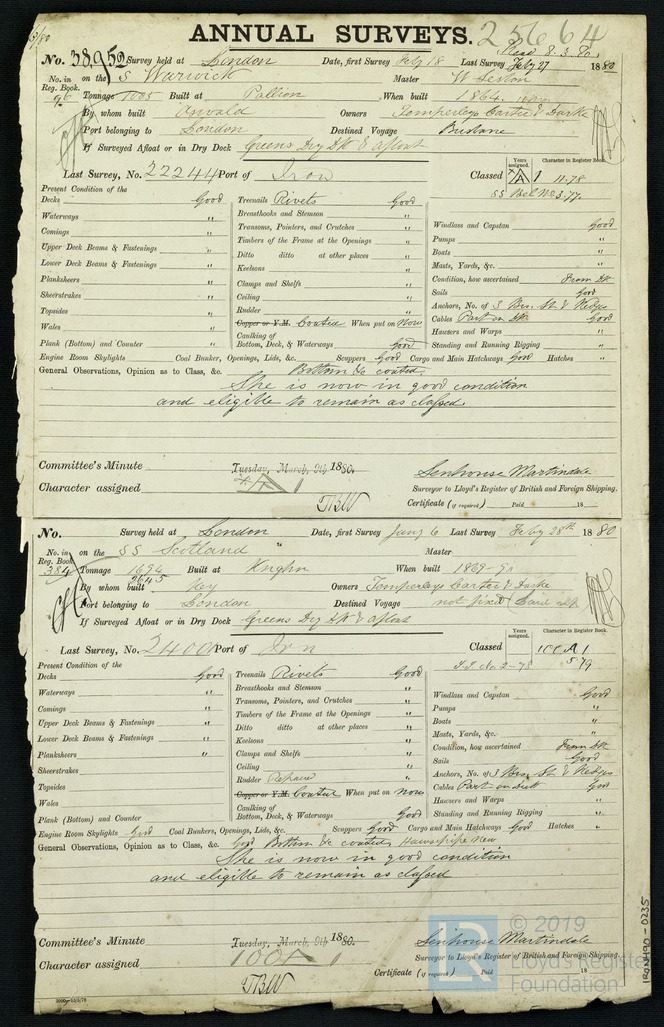 ANNUAL SURVEYS. 25664
Read 8.3.80
No. 38952 Survey held at London Date, first Survey Feby 18 Last Survey Feby 27 1880
No. in Reg. Book. 96 on the S Warwick Master W Sexton
Tonnage 1005 Built at Pallion When built 1864
By whom built Oswald Owners Temperleys Carter & Darke
Port belonging to London Destined Voyage Brisbane
If Surveyed Afloat or in Dry Dock Greens Dry Dk & afloat
Last Survey, No. 22244 Port of Iron Classed Years assigned. A Character in Register Book. 1 11.78
SS Bel No 3.77
Present Condition of the
Decks Good Treenails Rivets Good
Waterways " Breasthooks and Stemson "
Comings " Transoms, Pointers, and Crutches " Windlass and Capstan Good
Upper Deck Beams & Fastenings " Timbers of the Frame at the Openings " Pumps "
Lower Deck Beams & Fastenings " Ditto ditto at other places " Boats "
Planksheers " Keelsons " Masts, Yards, &c. "
Sheerstrakes " Clamps and Shelfs " Condition, how ascertained From Dk
Topsides " Ceiling " Sails Good
Wales " Rudder " Anchors, No. of 3 Brs. St & Kedges
Plank (Bottom) and Counter " Copper or Y.M. Coated When put on Now Cables Part on Dk Good
Caulking of Bottom, Deck, & Waterways Good Hawsers and Warps "
Standing and Running Rigging "
Engine Room Skylights Coal Bunker, Openings, Lids, &c. Scuppers Good Cargo and Main Hatchways Good Hatches "
General Observations, Opinion as to Class, &c. Bottom &c coated
She is now in good condition
and eligible to remain as classed
Committee's Minute Tuesday, March, 9th 1880. Senhouse Martindale
Character assigned A 1 Surveyor to Lloyd's Register of British and Foreign Shipping.
TBW Certificate (if required) Paid 18
No. Survey held at London Date, first Survey Jany 6 Last Survey Feby 28th 1880
No. in Reg. Book. 384 on the SS Scotland Master
Tonnage 1694 2645 Built at Knghn When built 1869
By whom built Key Owners Temperleys Carter & Darke
Port belonging to London Destined Voyage not fixed Laid up
If Surveyed Afloat or in Dry Dock Greens Dry Dk & afloat
Last Survey, No. 2400 Port of Iron Classed Years assigned. Character in Register Book. 100 A 1
5 79
Present Condition of the
Decks Good Treenails Rivets Good
Waterways " Breasthooks and Stemson " Windlass and Capstan Good
Comings " Transoms, Pointers, and Crutches " Pumps "
Upper Deck Beams & Fastenings " Timbers of the Frame at the Openings " Boats "
Lower Deck Beams & Fastenings " Ditto ditto at other places " Masts, Yards, &c. "
Planksheers " Keelsons " Condition, how ascertained From Dk
Sheerstrakes Clamps and Shelfs " Sails Good
Topsides Ceiling " Anchors, No. of 3 Brs. St & Kedges
Wales Rudder Repaired Cables Part on deck Good
Plank (Bottom) and Counter Copper or Y.M. Coated When put on now Hawsers and Warps "
Caulking of Bottom, Deck, & Waterways Good Standing and Running Rigging "
Engine Room Skylights Good Coal Bunkers, Openings, Lids, &c. Good Scuppers Good Cargo and Main Hatchways Good Hatches "
General Observations, Opinion as to Class, &c. Bottom &c coated, Hawsepipe new
She is now in good condition
and eligible to remain as classed
Committee's Minute Tuesday, March, 9th 1880. Senhouse Martindale
Character assigned 100 A 1 Surveyor to Lloyd's Register of British and Foreign Shipping.
TBW Certificate (if required) Paid 18
IRON490-0235
LR © 2019
Lloyd's Register
Foundation